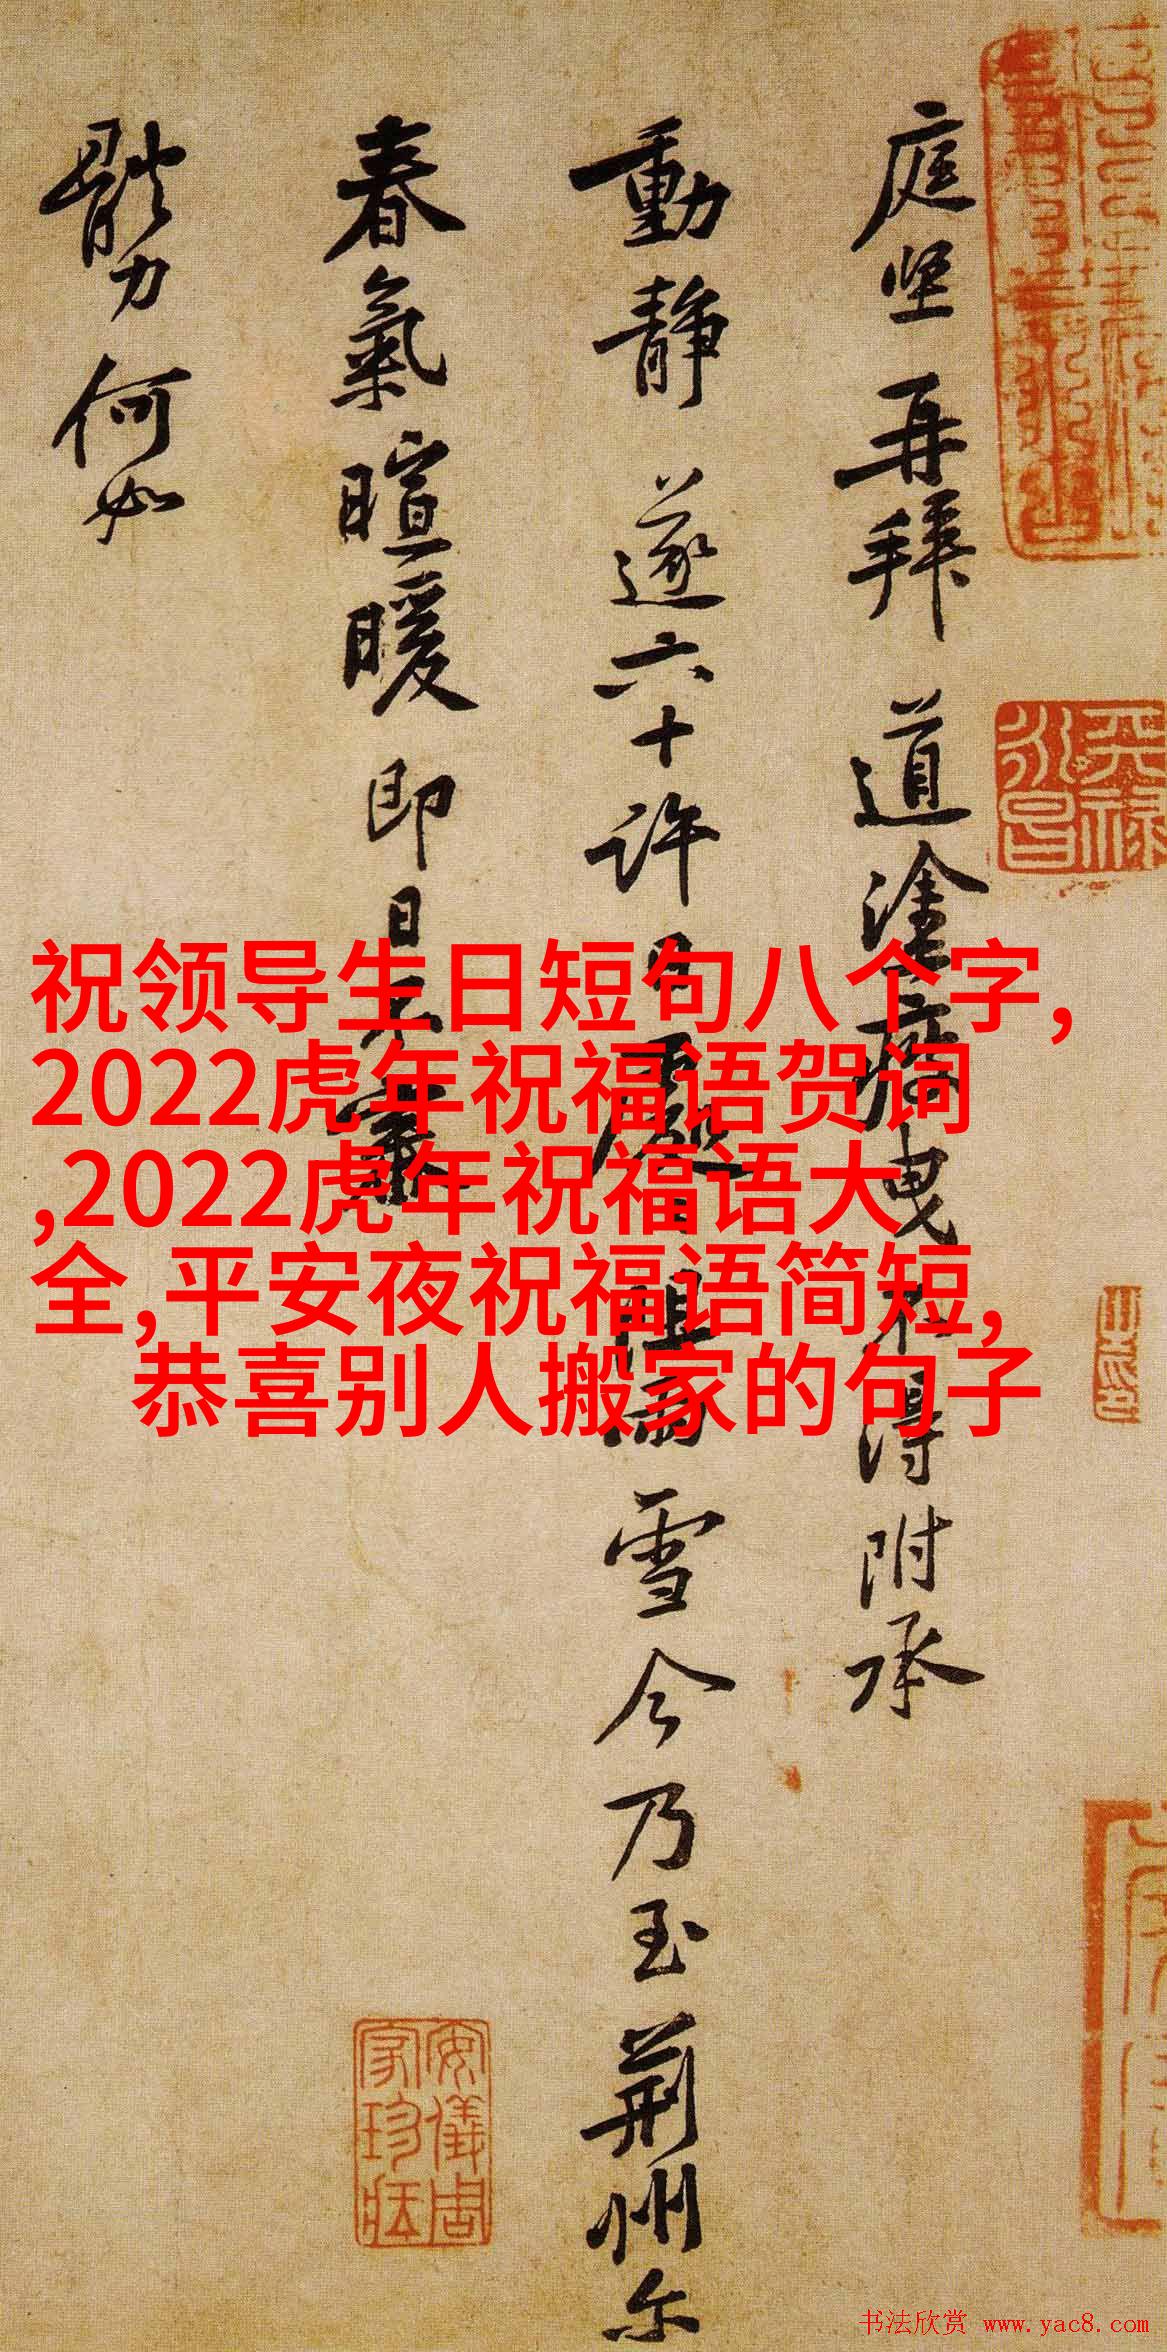 庭坚再拜道塗癃曳不得附承
動静遂六十許日屢阻雨雪今乃至荆州尔
春氣暄暖即日不審
體力何如
祝领导生日短句八个字,
2022虎年祝福语贺词
,2022虎年祝福语大
全,平安夜祝福语简短,
恭喜别人搬家的句子
天禄
永昌
安儀周
家珍藏
书法欣赏 www.yac8.com